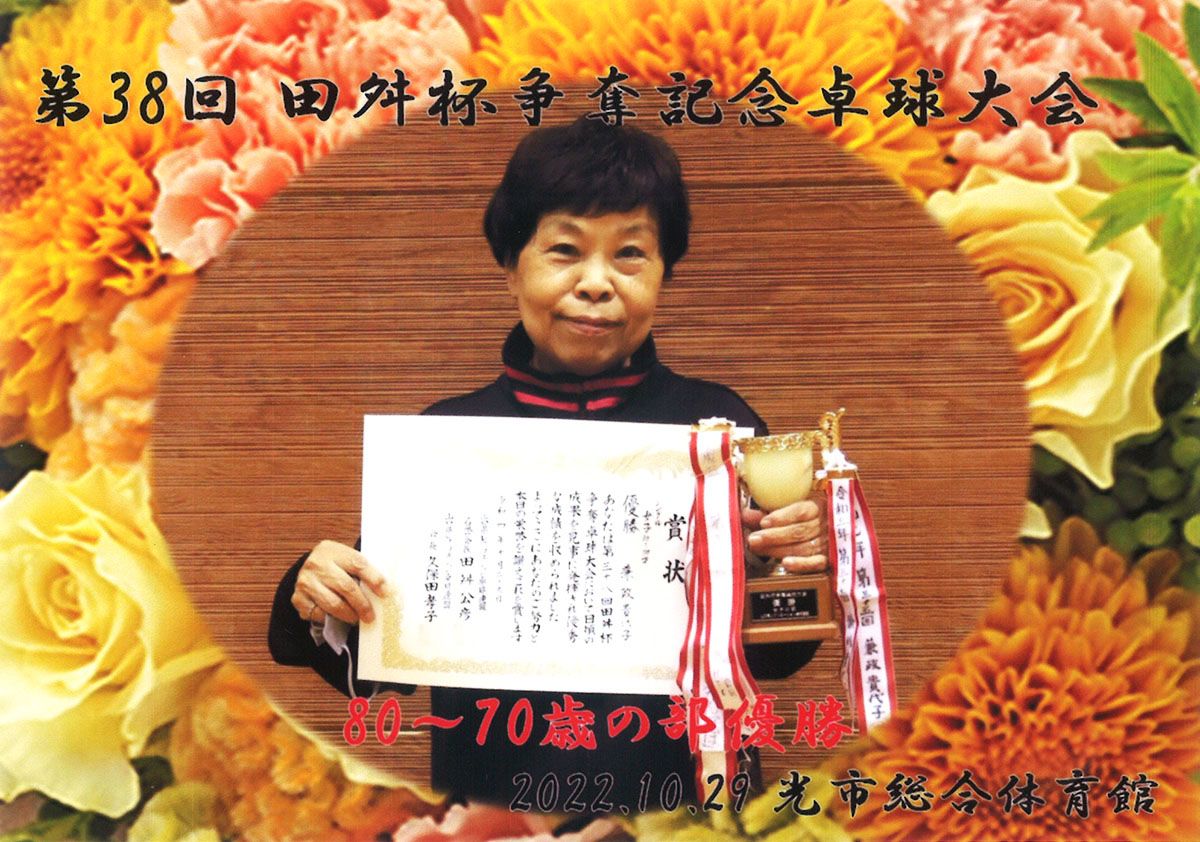 第38回 田舛杯争奪記念卓球大会
賞状
優勝
あなたは第三十八回田舛杯
争奪卓球大会において日頃の
成果を見事に発揮され優秀
な成績を収められました
よってここにあなたのご努力と
本日の栄誉を讃えこれを賞します
田舛公彦
久保田孝子
第三五回 兼政貴代子
優勝
80～70歳の部優勝
2022.10.29 光市総合体育館